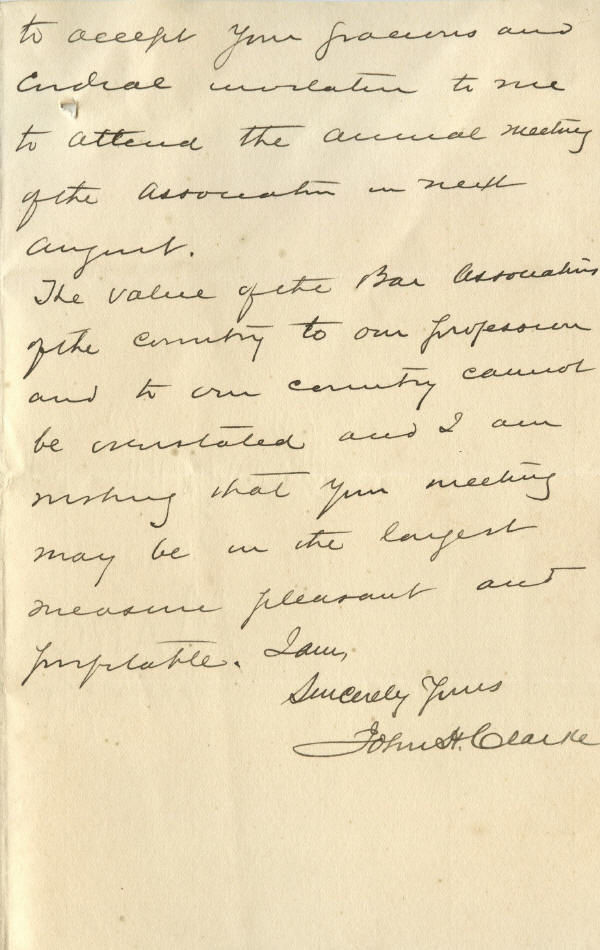 to accept your gracious and
cordial invitation to me
to attend the annual meeting
of the Association in next
August.
The value of the Bar Associations
of the country to our profession
and to our country cannot
be overstated and I am
wishing that your meeting
may be in the largest
measure pleasant and
profitable. I am,
Sincerely Yours
John H. Clarke